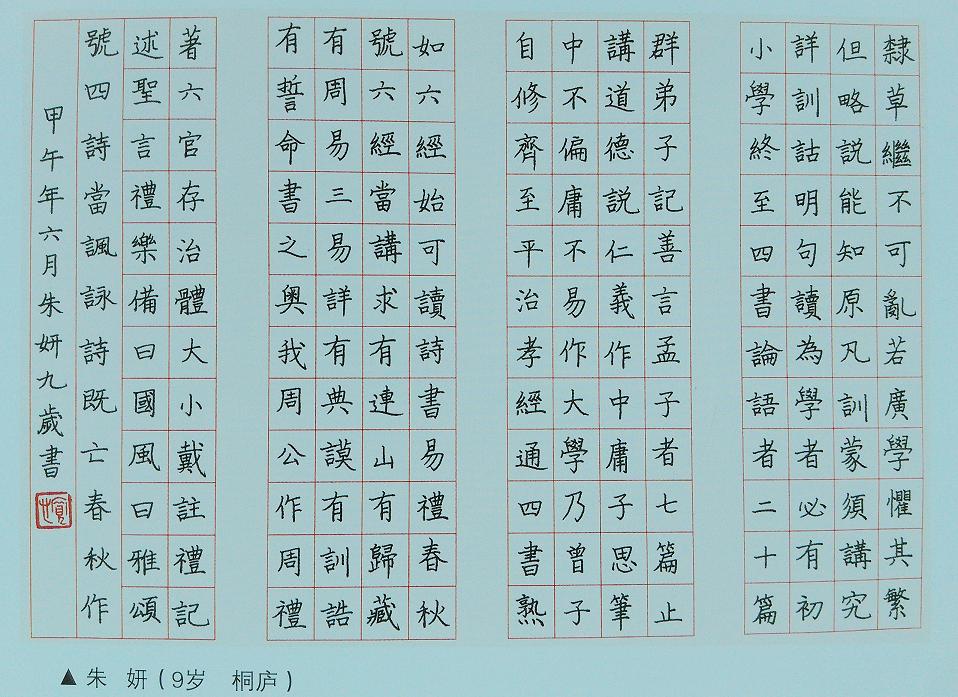 隸草繼不可亂若廣學懼其繁
但略説能知原凡訓蒙須講究
詳訓詁明句讀為學者必有初
小學終至四書論語者二十篇
群弟子記善言孟子者七篇止
講道德説仁義作中庸子思筆
中不偏庸不易作大學乃曾子
自修齊至平治孝經通四書熟
如六經始可讀詩書易禮春秋
號六經當講求有連山有歸藏
有周易三易詳有典謨有訓誥
有誓命書之奧我周公作周禮
著六官存治體大小戴註禮記
述聖言禮樂備曰國風曰雅頌
號四詩當諷詠詩既亡春秋作
甲午年六月朱妍九歲書
▲朱 妍(9岁 桐庐)